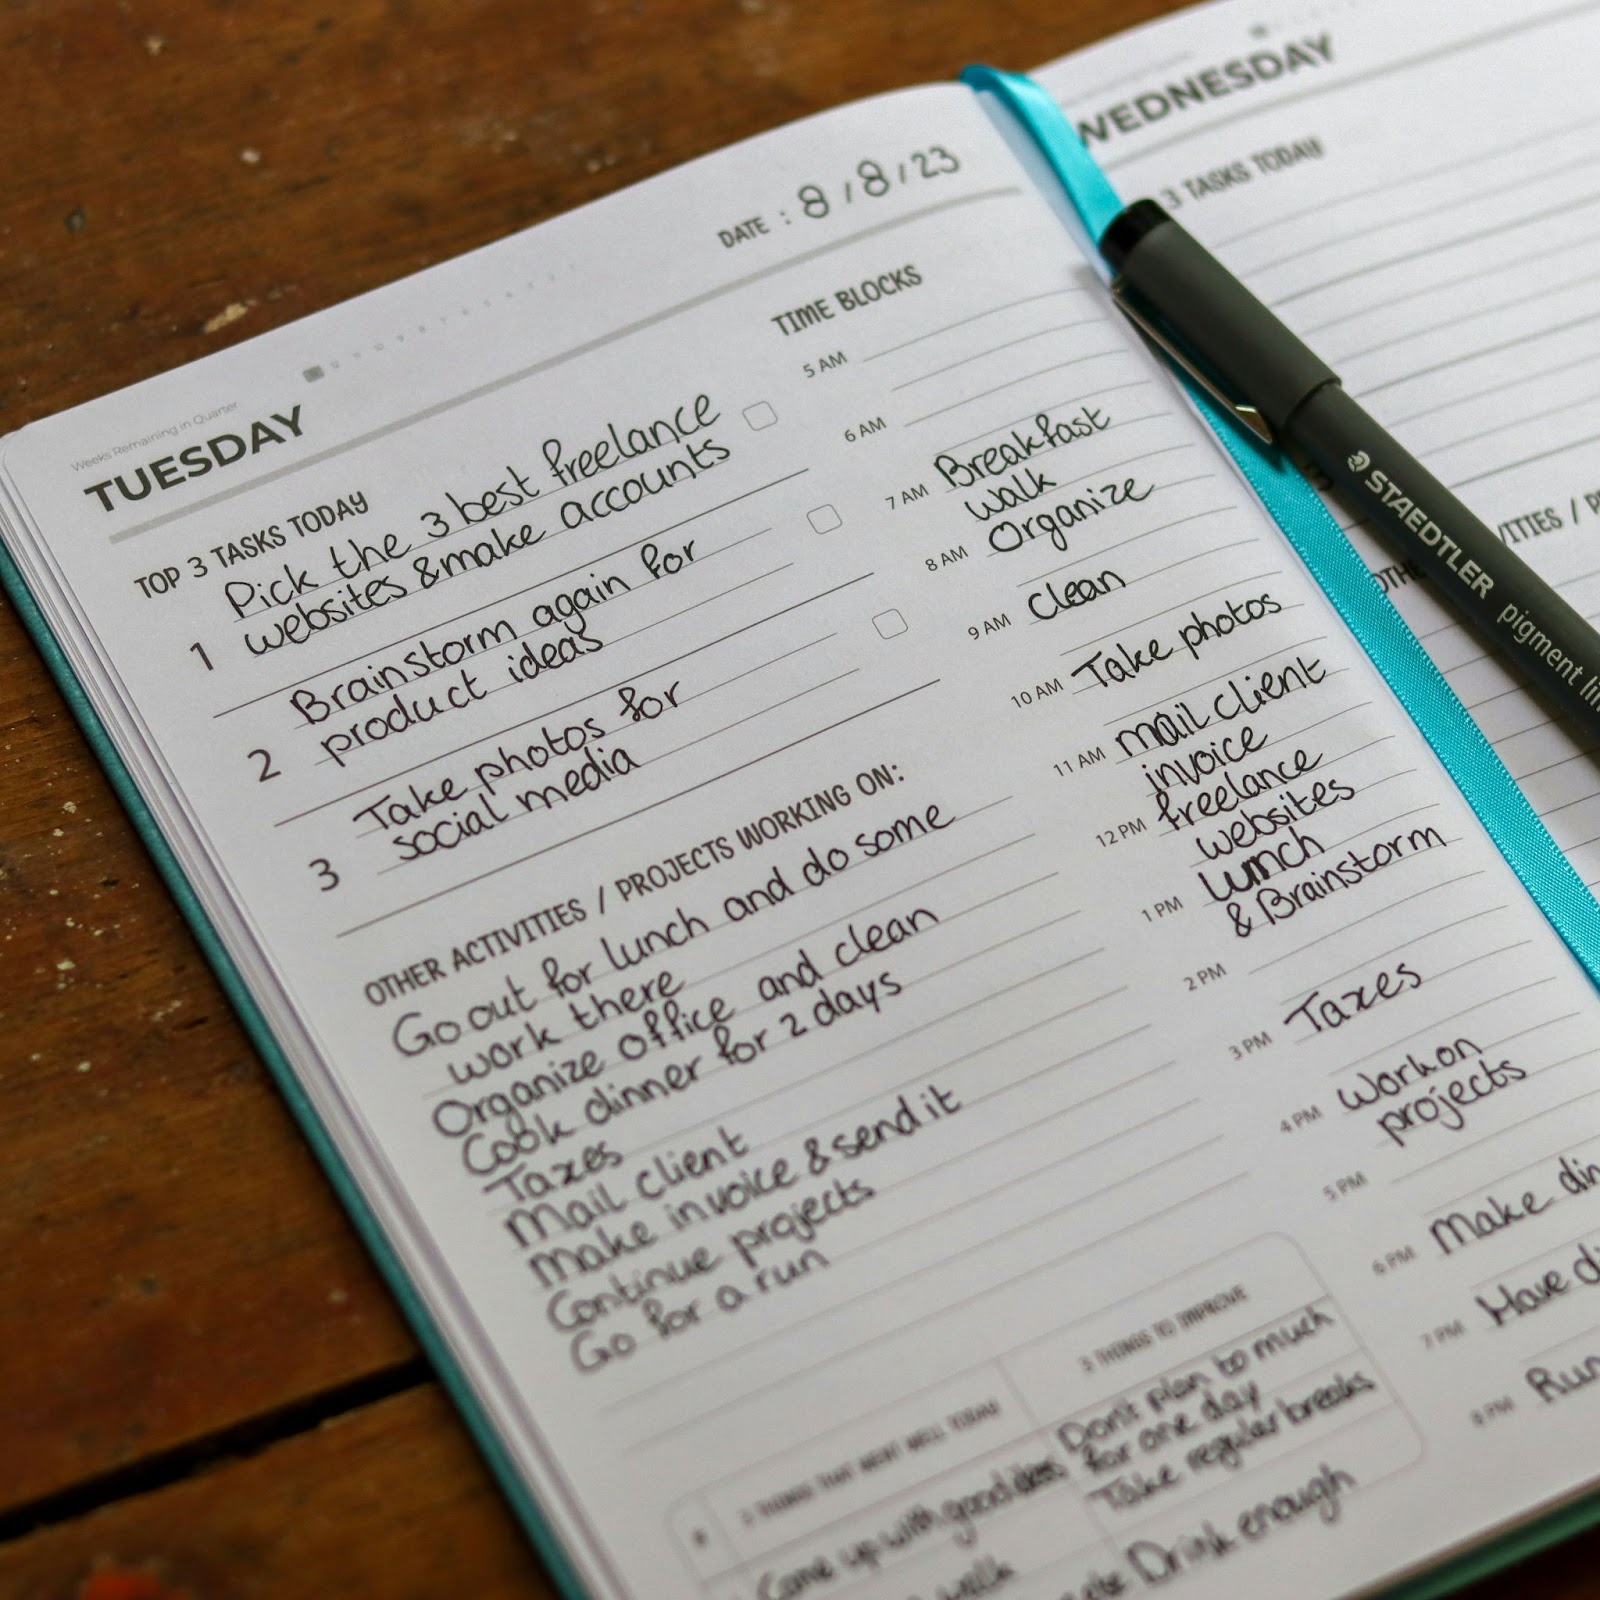 DATE : 8/8/23
Weeks Remaining in Quarter
TUESDAY
TOP 3 TASKS TODAY
1 Pick the 3 best freelance
websites & make accounts
2 Brainstorm again for
product ideas
3 Take photos for
social media
OTHER ACTIVITIES / PROJECTS WORKING ON:
Go out for lunch and do some
work there
Organize office and clean
Cook dinner for 2 days
Taxes
Mail client
Make invoice & send it
Continue projects
Go for a run
TIME BLOCKS
5 AM
6 AM
7 AM Breakfast
walk
8 AM Organize
9 AM Clean
10 AM Take photos
11 AM mail client
invoice
12 PM freelance
websites
1 PM lunch
& Brainstorm
2 PM
3 PM Taxes
4 PM Work on
projects
5 PM
6 PM Make din
7 PM Have di
8 PM Run
THINGS THAT WENT WELL TODAY
Come up with good ideas
walk
3 THINGS TO IMPROVE
Don't plan to much
for one day
Take regular breaks
Drink enough
WEDNESDAY
3 TASKS TODAY
STAEDTLER pigment lin